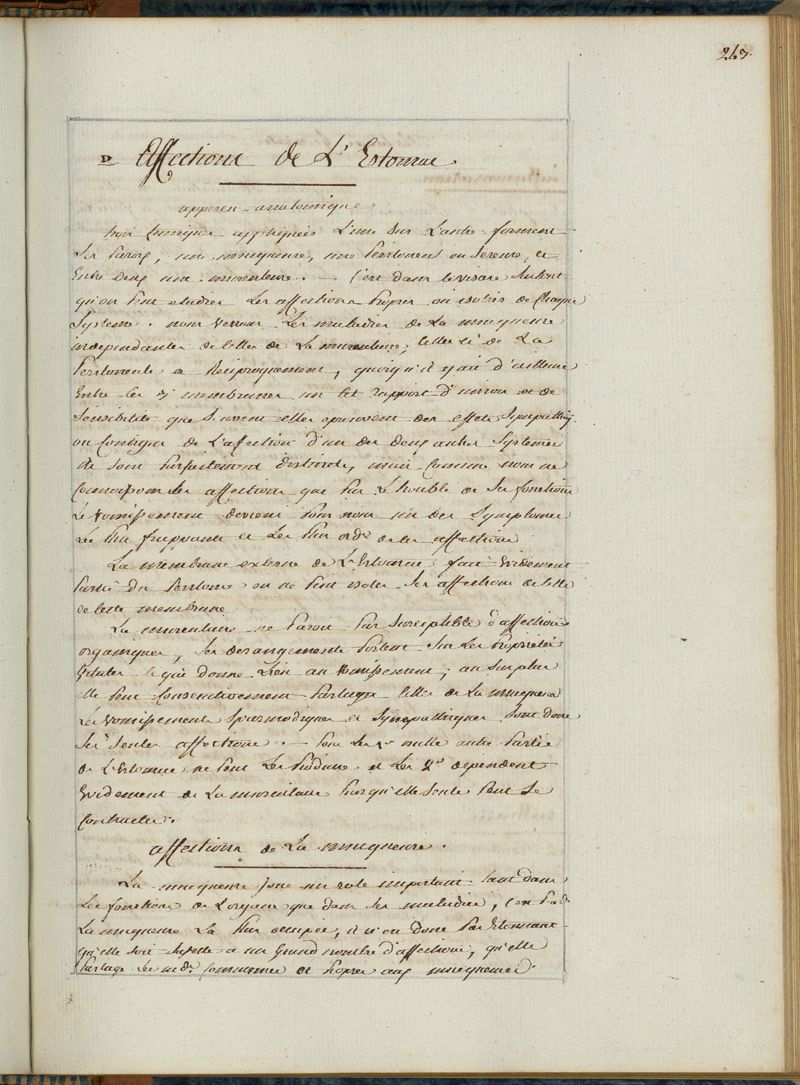 267.
D Affections de L'Estomac.
apperçu anatomique
trois tuniques appliquées l'une sur l'autre forment
Ses Parois, une muqueuse, une Peritoneal ou Sereuse, et
Entre deux une musculeuse. — C'est dans le viscere
qu'on Peut etudier Les affections Propres ou isolées de Chaque
Systeme. nous Verrons Les maladies de La muqueuse
independantes de Celles de La musculeuse, Celles ci de La
Peritoneale et Reciproquement, quoiqu'il y ait d'ailleurs
Entre les 3 membranes un tel rapport d'union et de
Sensibilité que Souvent elles eprouvent des effets Sympathiq.
ou Contigus de L'affection d'un des deux autres Systemes
de Sont Parfaitement distincts, mais Comme nous ne
Connoissons Ses affections que Par Le trouble de Ses fonctions
Le Vomissement devient Pour nous un des Symptomes
Les Plus frappants et Les Plus ordres de Ses affections
La membrane externe de L'Estomac fait Evidement
Partie du Peritoine on ne Peut isoler Ses affections de Celles
de Cette membrane
La musculeuse ne Paroit Pas Susceptible d'affections
organiques, Ses derangements Portent Sur Les Propriétés
Vitales Ce qui donne Lieu au Vomissement, au Surplus
elle Peut Consecutivement Partager Celles de La muqueuse
Les Vomissements Spasmodiques et Sympathiques Sont donc
Ses Seules affections. — Pour Les 1ers nulle autre Partie
de L'Estomac ne Peut Les Produire et Les 2ds dependent
Evidement de La musculeuse Puisqu'elle Seule Peut Se
Contracter.
affections de La muqueuse.
La muqueuse Joue un role important tant dans
Les fonctions de L'organe que dans Ses maladies, C'est
La muqueuse La Plus occupée, il n'est donc Pas Etonnant
qu'elle Soit Sujette a un Grand nombre d'affections, qu'elle
Partage Les Communes et Propres aux muqueuses.